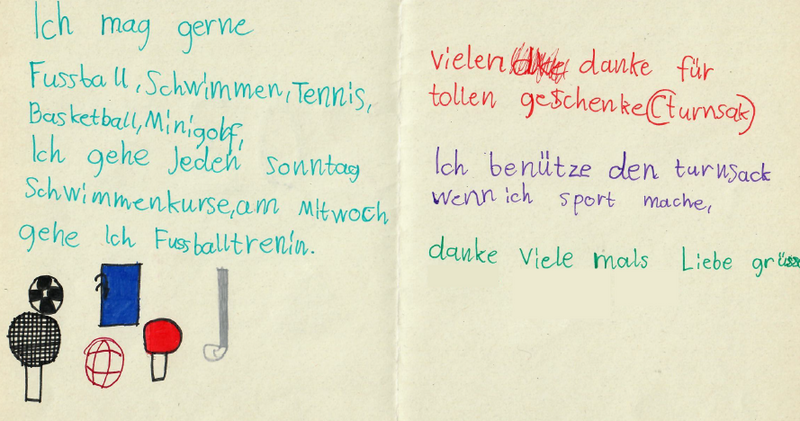 Ich mag gerne
Fussball, Schwimmen, Tennis,
Basketball, Minigolf,
Ich gehe Jeden sonntag
Schwimmenkurse, am Mitwoch
gehe Ich Fussballtrenin.
vielen danke für
tollen geschenke (turnsak)
Ich benütze den turnsack
wenn ich sport mache,
danke viele mals Liebe grüsse